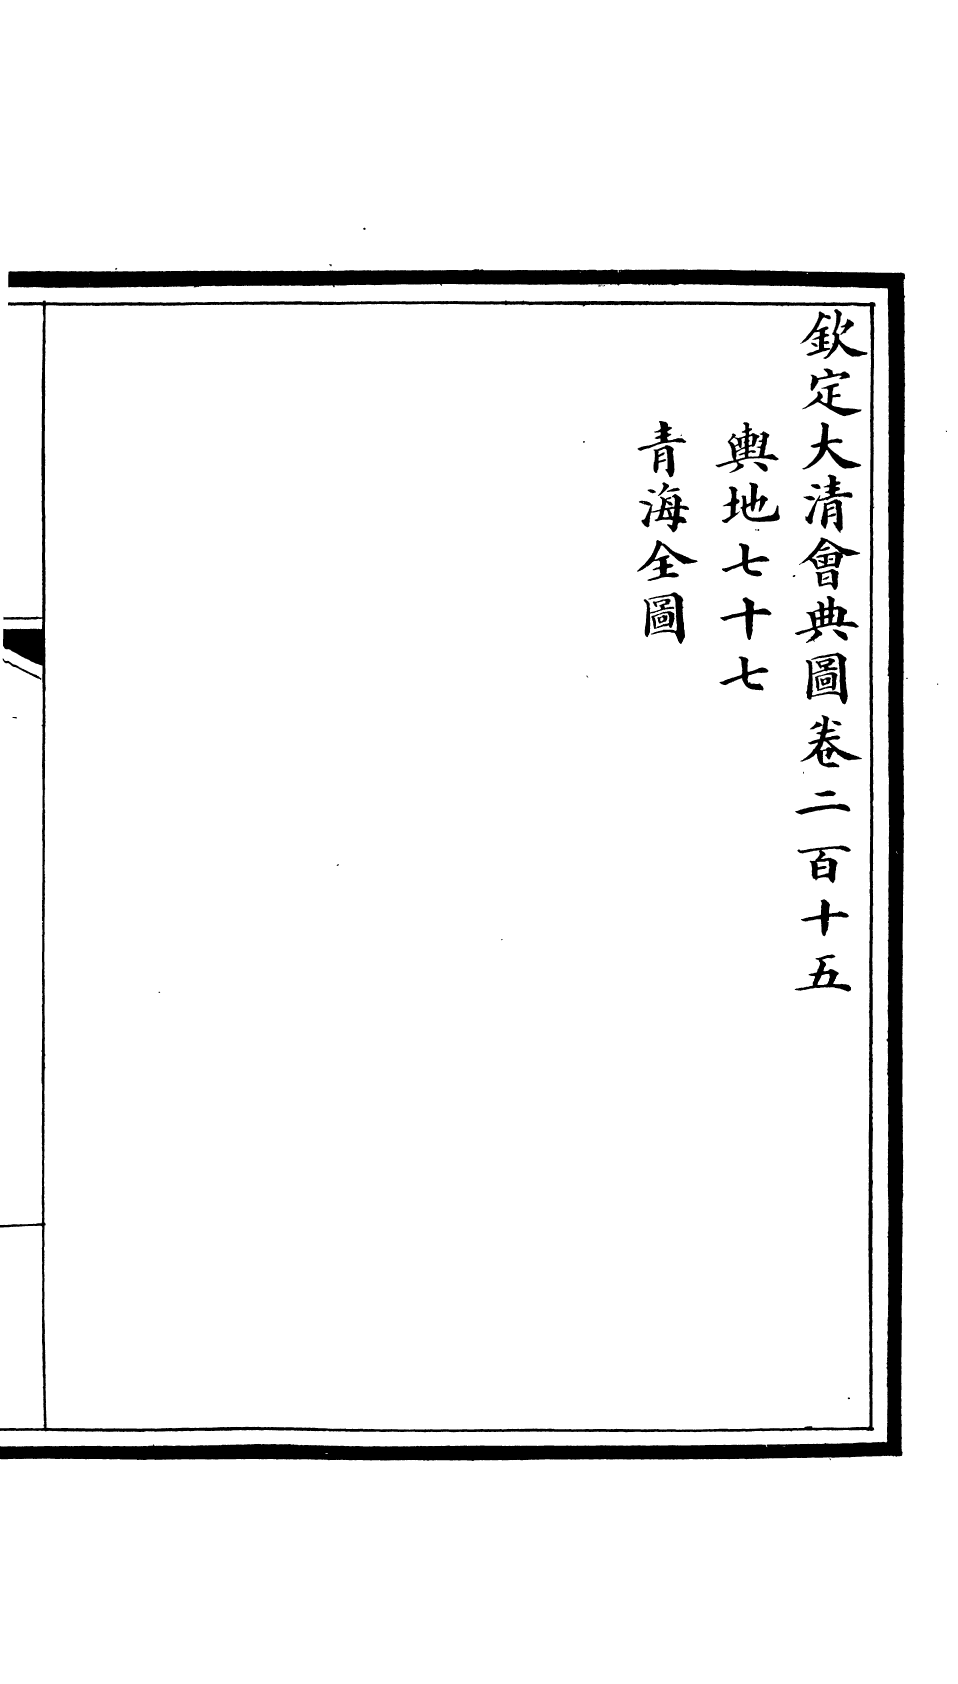 欽定大清會典圖卷二百十五
輿地七十七
青海全圖